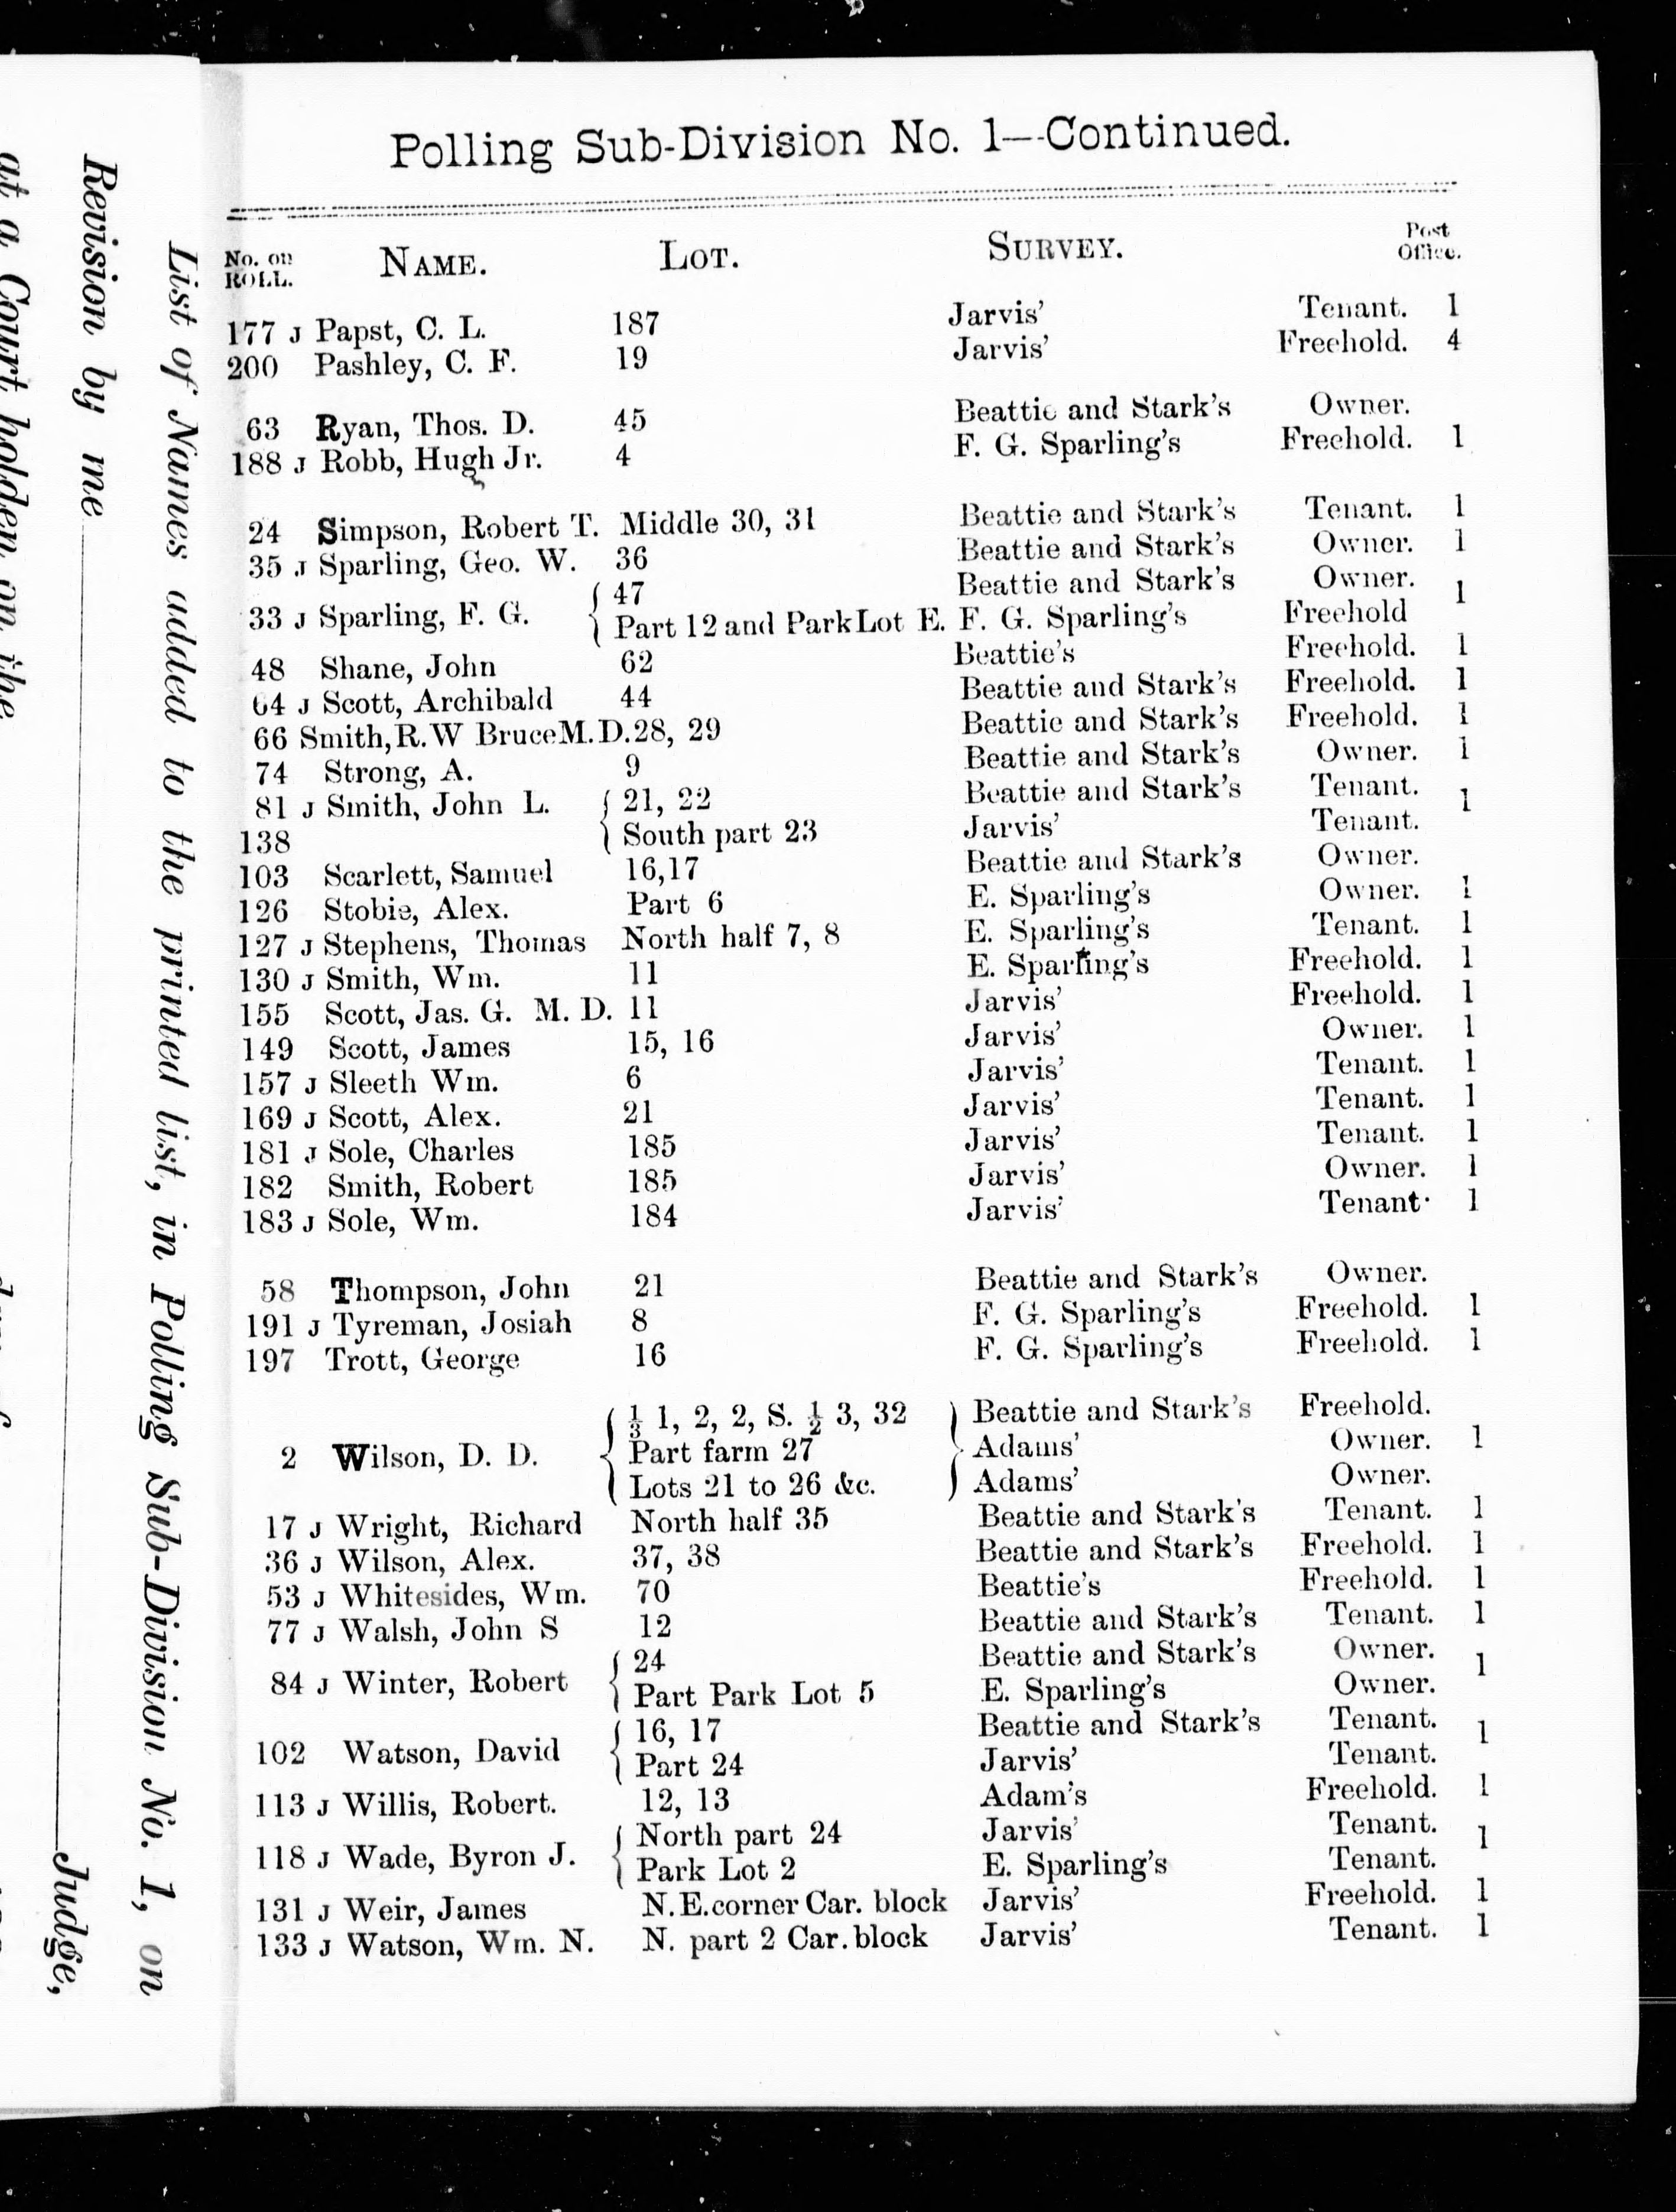 Polling Sub-Division No. 1—Continued.
No. on ROLL. NAME. LOT. SURVEY. Post Office.
177 J Papst, C. L. 187 Jarvis' Tenant. 1
200 Pashley, C. F. 19 Jarvis' Freehold. 4
63 Ryan, Thos. D. 45 Beattie and Stark's Owner.
188 J Robb, Hugh Jr. 4 F. G. Sparling's Freehold. 1
24 Simpson, Robert T. Middle 30, 31 Beattie and Stark's Tenant. 1
35 J Sparling, Geo. W. 36 Beattie and Stark's Owner. 1
33 J Sparling, F. G. { 47 Beattie and Stark's Owner. 1
Part 12 and Park Lot E. F. G. Sparling's Freehold
48 Shane, John 62 Beattie's Freehold. 1
64 J Scott, Archibald 44 Beattie and Stark's Freehold. 1
66 Smith, R. W Bruce M. D. 28, 29 Beattie and Stark's Freehold. 1
74 Strong, A. 9 Beattie and Stark's Owner. 1
81 J Smith, John L. { 21, 22 Beattie and Stark's Tenant. 1
138 South part 23 Jarvis' Tenant.
103 Scarlett, Samuel 16,17 Beattie and Stark's Owner.
126 Stobie, Alex. Part 6 E. Sparling's Owner. 1
127 J Stephens, Thomas North half 7, 8 E. Sparling's Tenant. 1
130 J Smith, Wm. 11 E. Sparling's Freehold. 1
155 Scott, Jas. G. M. D. 11 Jarvis' Freehold. 1
149 Scott, James 15, 16 Jarvis' Owner. 1
157 J Sleeth Wm. 6 Jarvis' Tenant. 1
169 J Scott, Alex. 21 Jarvis' Tenant. 1
181 J Sole, Charles 185 Jarvis' Tenant. 1
182 Smith, Robert 185 Jarvis' Owner. 1
183 J Sole, Wm. 184 Jarvis' Tenant· 1
58 Thompson, John 21 Beattie and Stark's Owner.
191 J Tyreman, Josiah 8 F. G. Sparling's Freehold. 1
197 Trott, George 16 F. G. Sparling's Freehold. 1
⅓ 1, 2, 2, S. ½ 3, 32 Beattie and Stark's Freehold.
2 Wilson, D. D. { Part farm 27 } Adams' Owner. 1
Lots 21 to 26 &c. Adams' Owner.
17 J Wright, Richard North half 35 Beattie and Stark's Tenant. 1
36 J Wilson, Alex. 37, 38 Beattie and Stark's Freehold. 1
53 J Whitesides, Wm. 70 Beattie's Freehold. 1
77 J Walsh, John S 12 Beattie and Stark's Tenant. 1
84 J Winter, Robert { 24 Beattie and Stark's Owner. 1
Part Park Lot 5 E. Sparling's Owner.
102 Watson, David { 16, 17 Beattie and Stark's Tenant. 1
Part 24 Jarvis' Tenant.
113 J Willis, Robert. 12, 13 Adam's Freehold. 1
118 J Wade, Byron J. { North part 24 Jarvis' Tenant. 1
Park Lot 2 E. Sparling's Tenant.
131 J Weir, James N. E. corner Car. block Jarvis' Freehold. 1
133 J Watson, Wm. N. N. part 2 Car. block Jarvis' Tenant. 1
List of Names added to the printed list, in Polling Sub-Division No. 1, on
Revision by me Judge,
at a Court holden on the